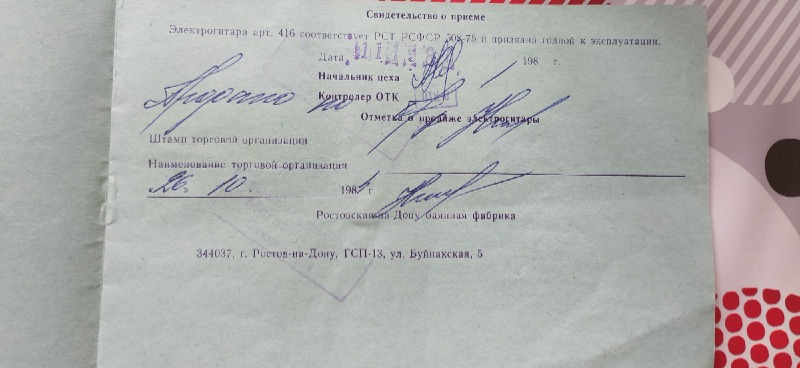 Свидетельство о приеме
Электрогитара арт. 416 соответствует РСТ РСФСР 508-75 и признана годной к эксплуатации.
Дата 198 г.
Начальник цеха
Контролер ОТК
Продано
Отметка о продаже электрогитары
Штамп торговой организации
Наименование торговой организации
26. 10. 1984 г
Ростовская-на Дону баянная фабрика
344037, г. Ростов-на-Дону, ГСП-13, ул. Буйнакская, 5